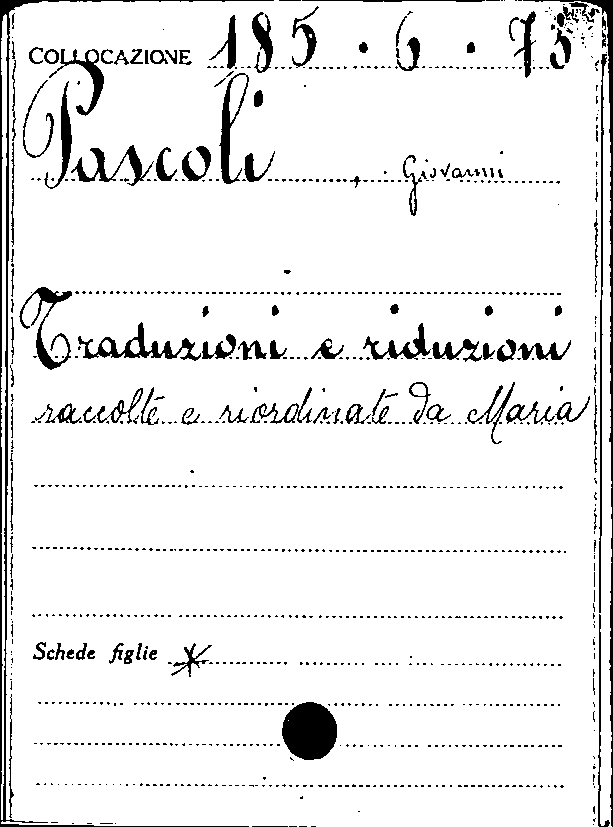 COLLOCAZIONE 185.6.75
Pascoli, Giovanni
Traduzioni e riduzioni
raccolte e riordinate da Maria
Schede figlie *